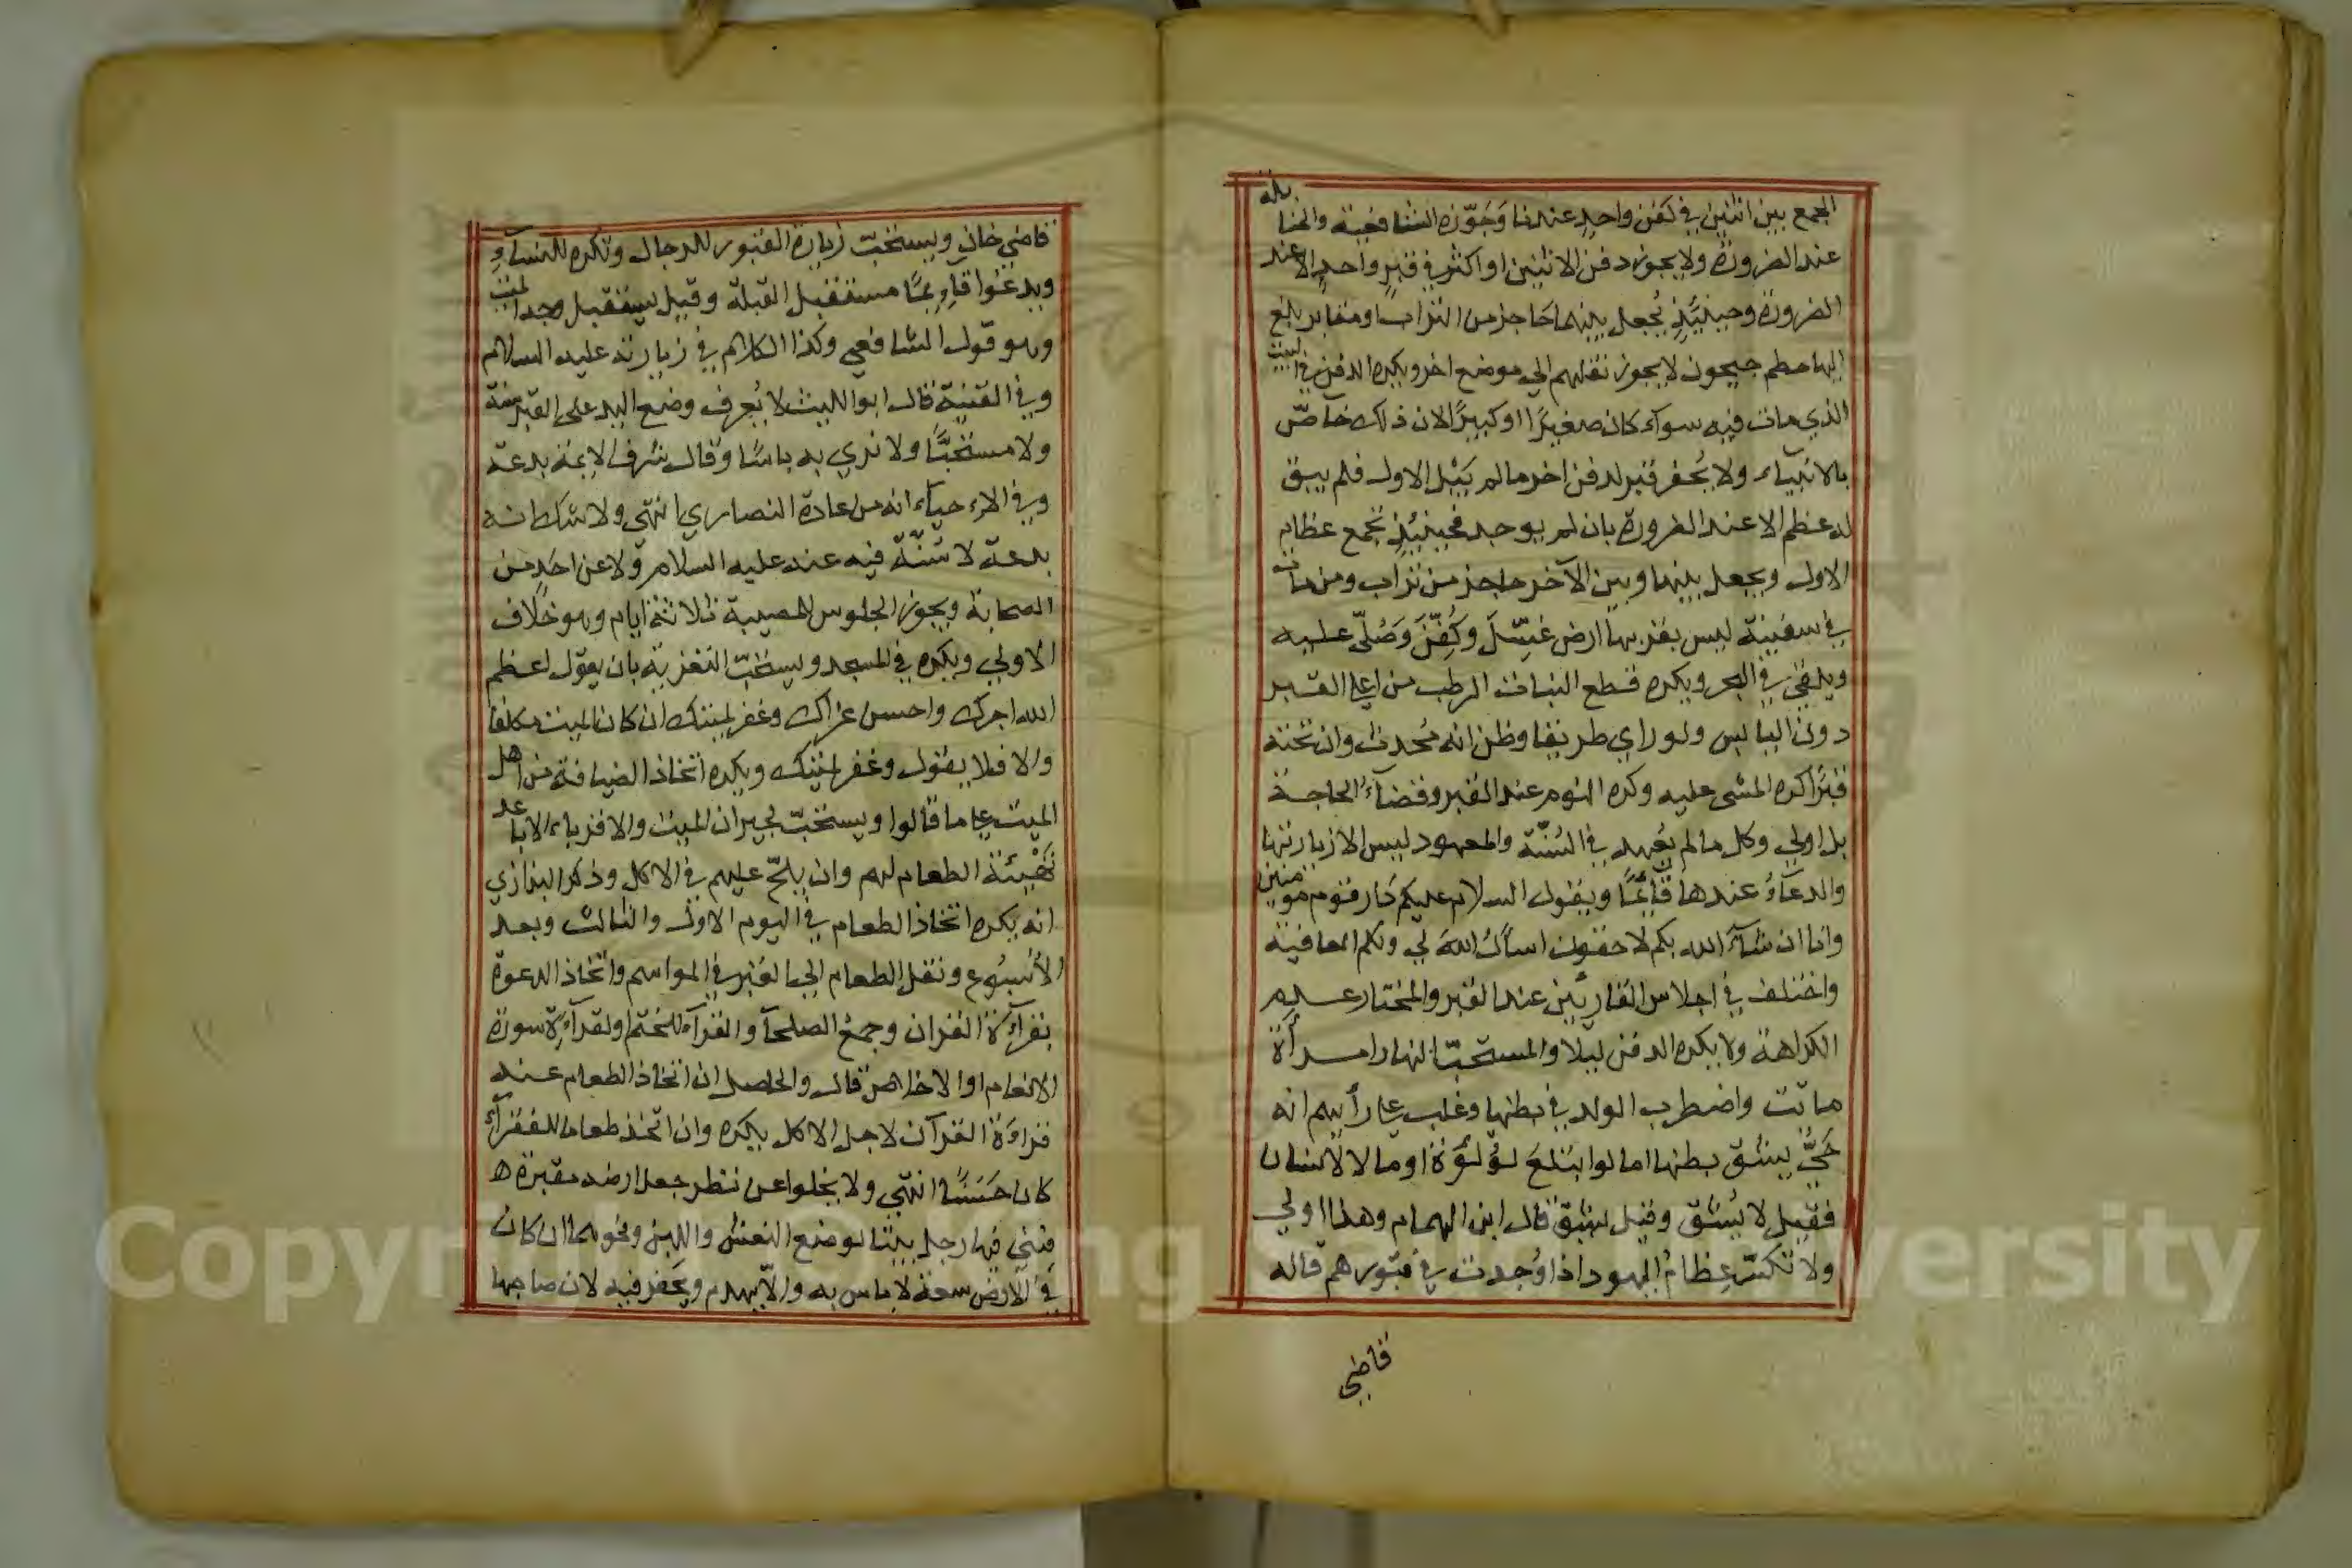 الجمع بين اثنين في كفن واحد عندنا وَجَوَّزه الشافعية والحنابلة
عند الضرورة ولا يجوز دفن الاثنين او اكثر في قبر واحد الا عند
الضرورة وحينئذٍ يُجعل بينهما حاجز من التراب ومقابر بلغ
اليها حطم جيحون لا يجوز نقلهم الي موضع اخر ويكره الدفن في البيت
الذي مات فيه سواء كان صغيرًا او كبيرًا لان ذلك خاصّ
بالانبياء ولا يُحفر قبر لدفن اخر ما لم يَبْل الاول فلم يبق
له عظم الا عند الضرورة بان لم يوجد فحينئذٍ تجمع عظام
الاول ويجعل بينها وبين الآخر حاجز من تراب ومن مات
في سفينة ليس بقربها ارض غُسِّلَ وكُفِّنَ وَصُلّي عليه
ويلقي في البحر ويكره قطع النبات الرطب من اعلا القبر
دون اليابس ولو راي طريقا وظن انه مُحدث وان تحته
قبرًا كره المشي عليه وكره النوم عند القبر وقضاءُ الحاجة
بل اولي وكل ما لم يُعهد في السُنّة والمعهود ليس الا زيارتها
والدعآءُ عندها قآئمًا ويقول السلام عليكم دار قوم مومنين
وانا ان شآءَ الله بكم لاحقون اسأل اللهَ لي ولكم العافية
واختلف في اجلاس القارئين عند القبر والمختار عدم
الكراهة ولا يكره الدفن ليلا والمستحبّ النهار امرأة
ماتت واضطرب الولد في بطنها وغلب علي رأيهم انه
حَيٌّ يشق بطنها اما لو ابتلعَ لؤلؤة او مالا لانسان
فقيل لا يُشق وقيل يشق قال ابن الهمام وهذا اولي
ولا تكسر عِظامُ اليهود اذا وُجدت في قبورهم قاله
قاضي
قاضي خان ويستحبّ زيارة القبور للرجال وتكره للنسآء
ويدعُوا قآئمًا مستقبل القبلة وقيل يستقبل وجه الميت
وهو قول الشافعي وكذا الكلام في زيارته عليه السلام
وفي القنية قال ابو الليث لا يُعرف وضع اليد على القبر سنة
ولا مستحبًّا ولا نري به باسًا وقال شرف الايمة بدعة
وفي الاحيآء انه من عادة النصاري انتهي ولا شك انه
بدعة لا سُنّة فيه عنه عليه السلام ولا عن احدٍ من
الصحابة ويجوز الجلوس للمصيبة ثلاثة ايام وهو خلاف
الاولي ويكره في المسجد ويستحبّ التعزية بان يقول اعظم
الله اجرك واحسن عزاك وغفر لميتك ان كان الميت مكلفا
والا فلا يقول وغفر لميتك ويكره اتخاذ الضيافة من اهل
الميت علي ما قالوا ويستحبّ لجيران الميت والاقرباء الاباعد
تَهْيِئة الطعام لهم وان يلحّ عليهم في الاكل وذكر البزازي
انه يكره اتخاذ الطعام في اليوم الاول والثالث وبعد
الاُسبُوع ونقل الطعام الي القبر في المواسم واتخاذ الدعوة
بقرآءة القران وجمع الصلحآ والقرآء للختم او لقرآءة سورة
الانعام او الاخلاص قال والحاصل ان اتخاذ الطعام عند
قراءة القرآن لاجل الاكل يكره وان اتخذ طعاما للفقرآء
كان حَسَنًا انتهي ولا يخلوا عن نظر جعل ارضه مقبرة
فبني فيها رجل بيتا لوضع النعش واللبن ونحوهما ان كان
في الارض سعة لا باس به والا يهدم ويحفر فيه لان صاحبها
Copyright © King Saud University